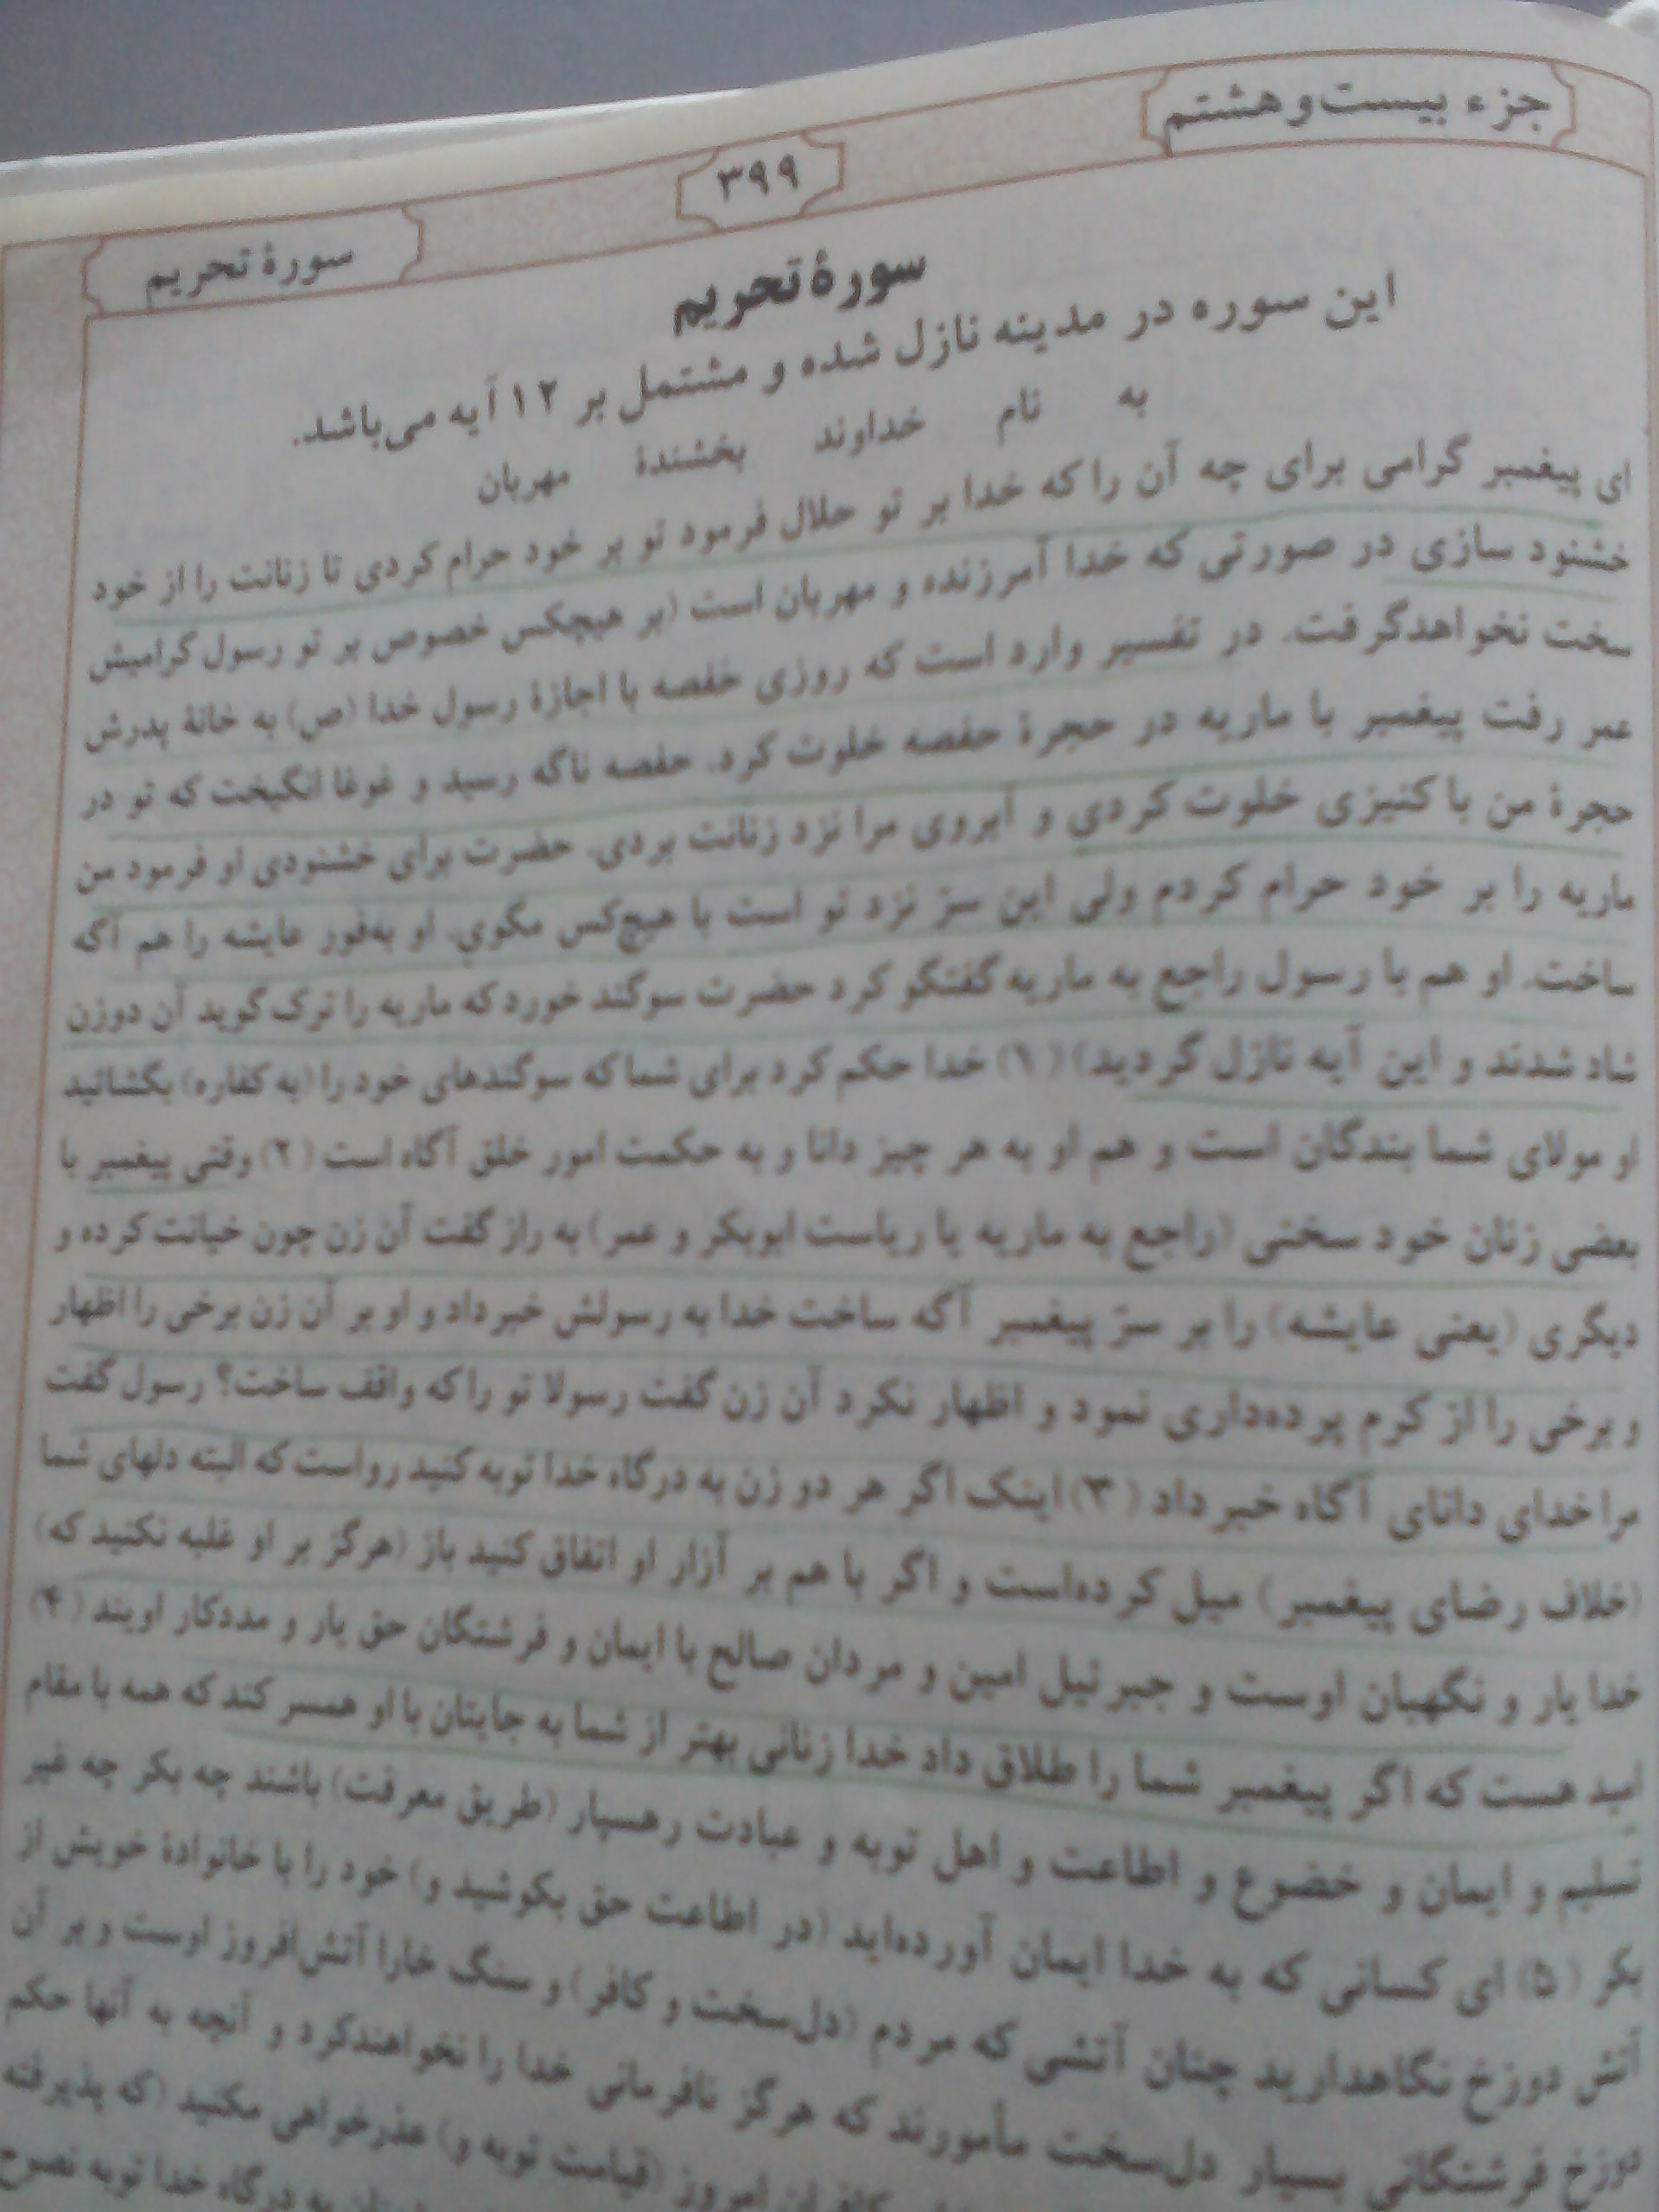 جزء بیست و هشتم
۳۹۹
سورهٔ تحریم
سورهٔ تحریم
این سوره در مدینه نازل شده و مشتمل بر ۱۲ آیه می‌باشد.
به نام خداوند بخشندهٔ مهربان
ای پیغمبر گرامی برای چه آن را که خدا بر تو حلال فرمود تو بر خود حرام کردی تا زنانت را از خود
خشنود سازی در صورتی که خدا آمرزنده و مهربان است (بر هیچکس خصوص بر تو رسول گرامیش
سخت نخواهدگرفت. در تفسیر وارد است که روزی حفصه با اجازهٔ رسول خدا (ص) به خانهٔ پدرش
عمر رفت پیغمبر با ماریه در حجرهٔ حفصه خلوت کرد. حفصه ناگه رسید و غوغا انگیخت که تو در
حجرهٔ من با کنیزی خلوت کردی و آبروی مرا نزد زنانت بردی. حضرت برای خشنودی او فرمود من
ماریه را بر خود حرام کردم ولی این سرّ نزد تو است با هیچ‌کس مگوی. او به‌فور عایشه را هم آگه
ساخت. او هم با رسول راجع به ماریه گفتگو کرد حضرت سوگند خورد که ماریه را ترک گوید آن دوزن
شاد شدند و این آیه نازل گردید) (۱) خدا حکم کرد برای شما که سوگندهای خود را (به کفاره) بگشائید
او مولای شما بندگان است و هم او به هر چیز دانا و به حکمت امور خلق آگاه است (۲) وقتی پیغمبر با
بعضی زنان خود سخنی (راجع به ماریه یا ریاست ابوبکر و عمر) به راز گفت آن زن چون خیانت کرده و
دیگری (یعنی عایشه) را بر سرّ پیغمبر آگه ساخت خدا به رسولش خبر داد و او بر آن زن برخی را اظهار
و برخی را از کرم پرده‌داری نمود و اظهار نکرد آن زن گفت رسولا تو را که واقف ساخت؟ رسول گفت
مرا خدای دانای آگاه خبر داد (۳) اینک اگر هر دو زن به درگاه خدا توبه کنید رواست که البته دلهای شما
(خلاف رضای پیغمبر) میل کرده‌است و اگر با هم بر آزار او اتفاق کنید باز (هرگز بر او غلبه نکنید که)
خدا یار و نگهبان اوست و جبرئیل امین و مردان صالح با ایمان و فرشتگان حق یار و مددکار اویند (۴)
امید هست که اگر پیغمبر شما را طلاق داد خدا زنانی بهتر از شما به جایتان با او همسر کند که همه با مقام
تسلیم و ایمان و خضوع و اطاعت و اهل توبه و عبادت رهسپار (طریق معرفت) باشند چه بکر چه غیر
بکر (۵) ای کسانی که به خدا ایمان آورده‌اید (در اطاعت حق بکوشید و) خود را با خانوادهٔ خویش از
آتش دوزخ نگاهدارید چنان آتشی که مردم (دل‌سخت و کافر) و سنگ خارا آتش‌افروز اوست و بر آن
دوزخ فرشتگانی بسیار دل‌سخت مأمورند که هرگز نافرمانی خدا را نخواهندکرد و آنچه به آنها حکم
کافران امروز (قیامت توبه و) عذرخواهی مکنید (که پذیرفته
به درگاه خدا توبه نصوح